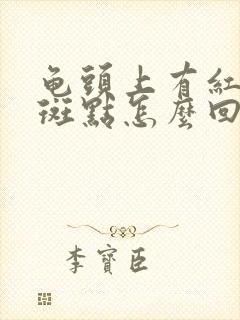 龟頭上有紅
斑點怎麼回
李寶臣